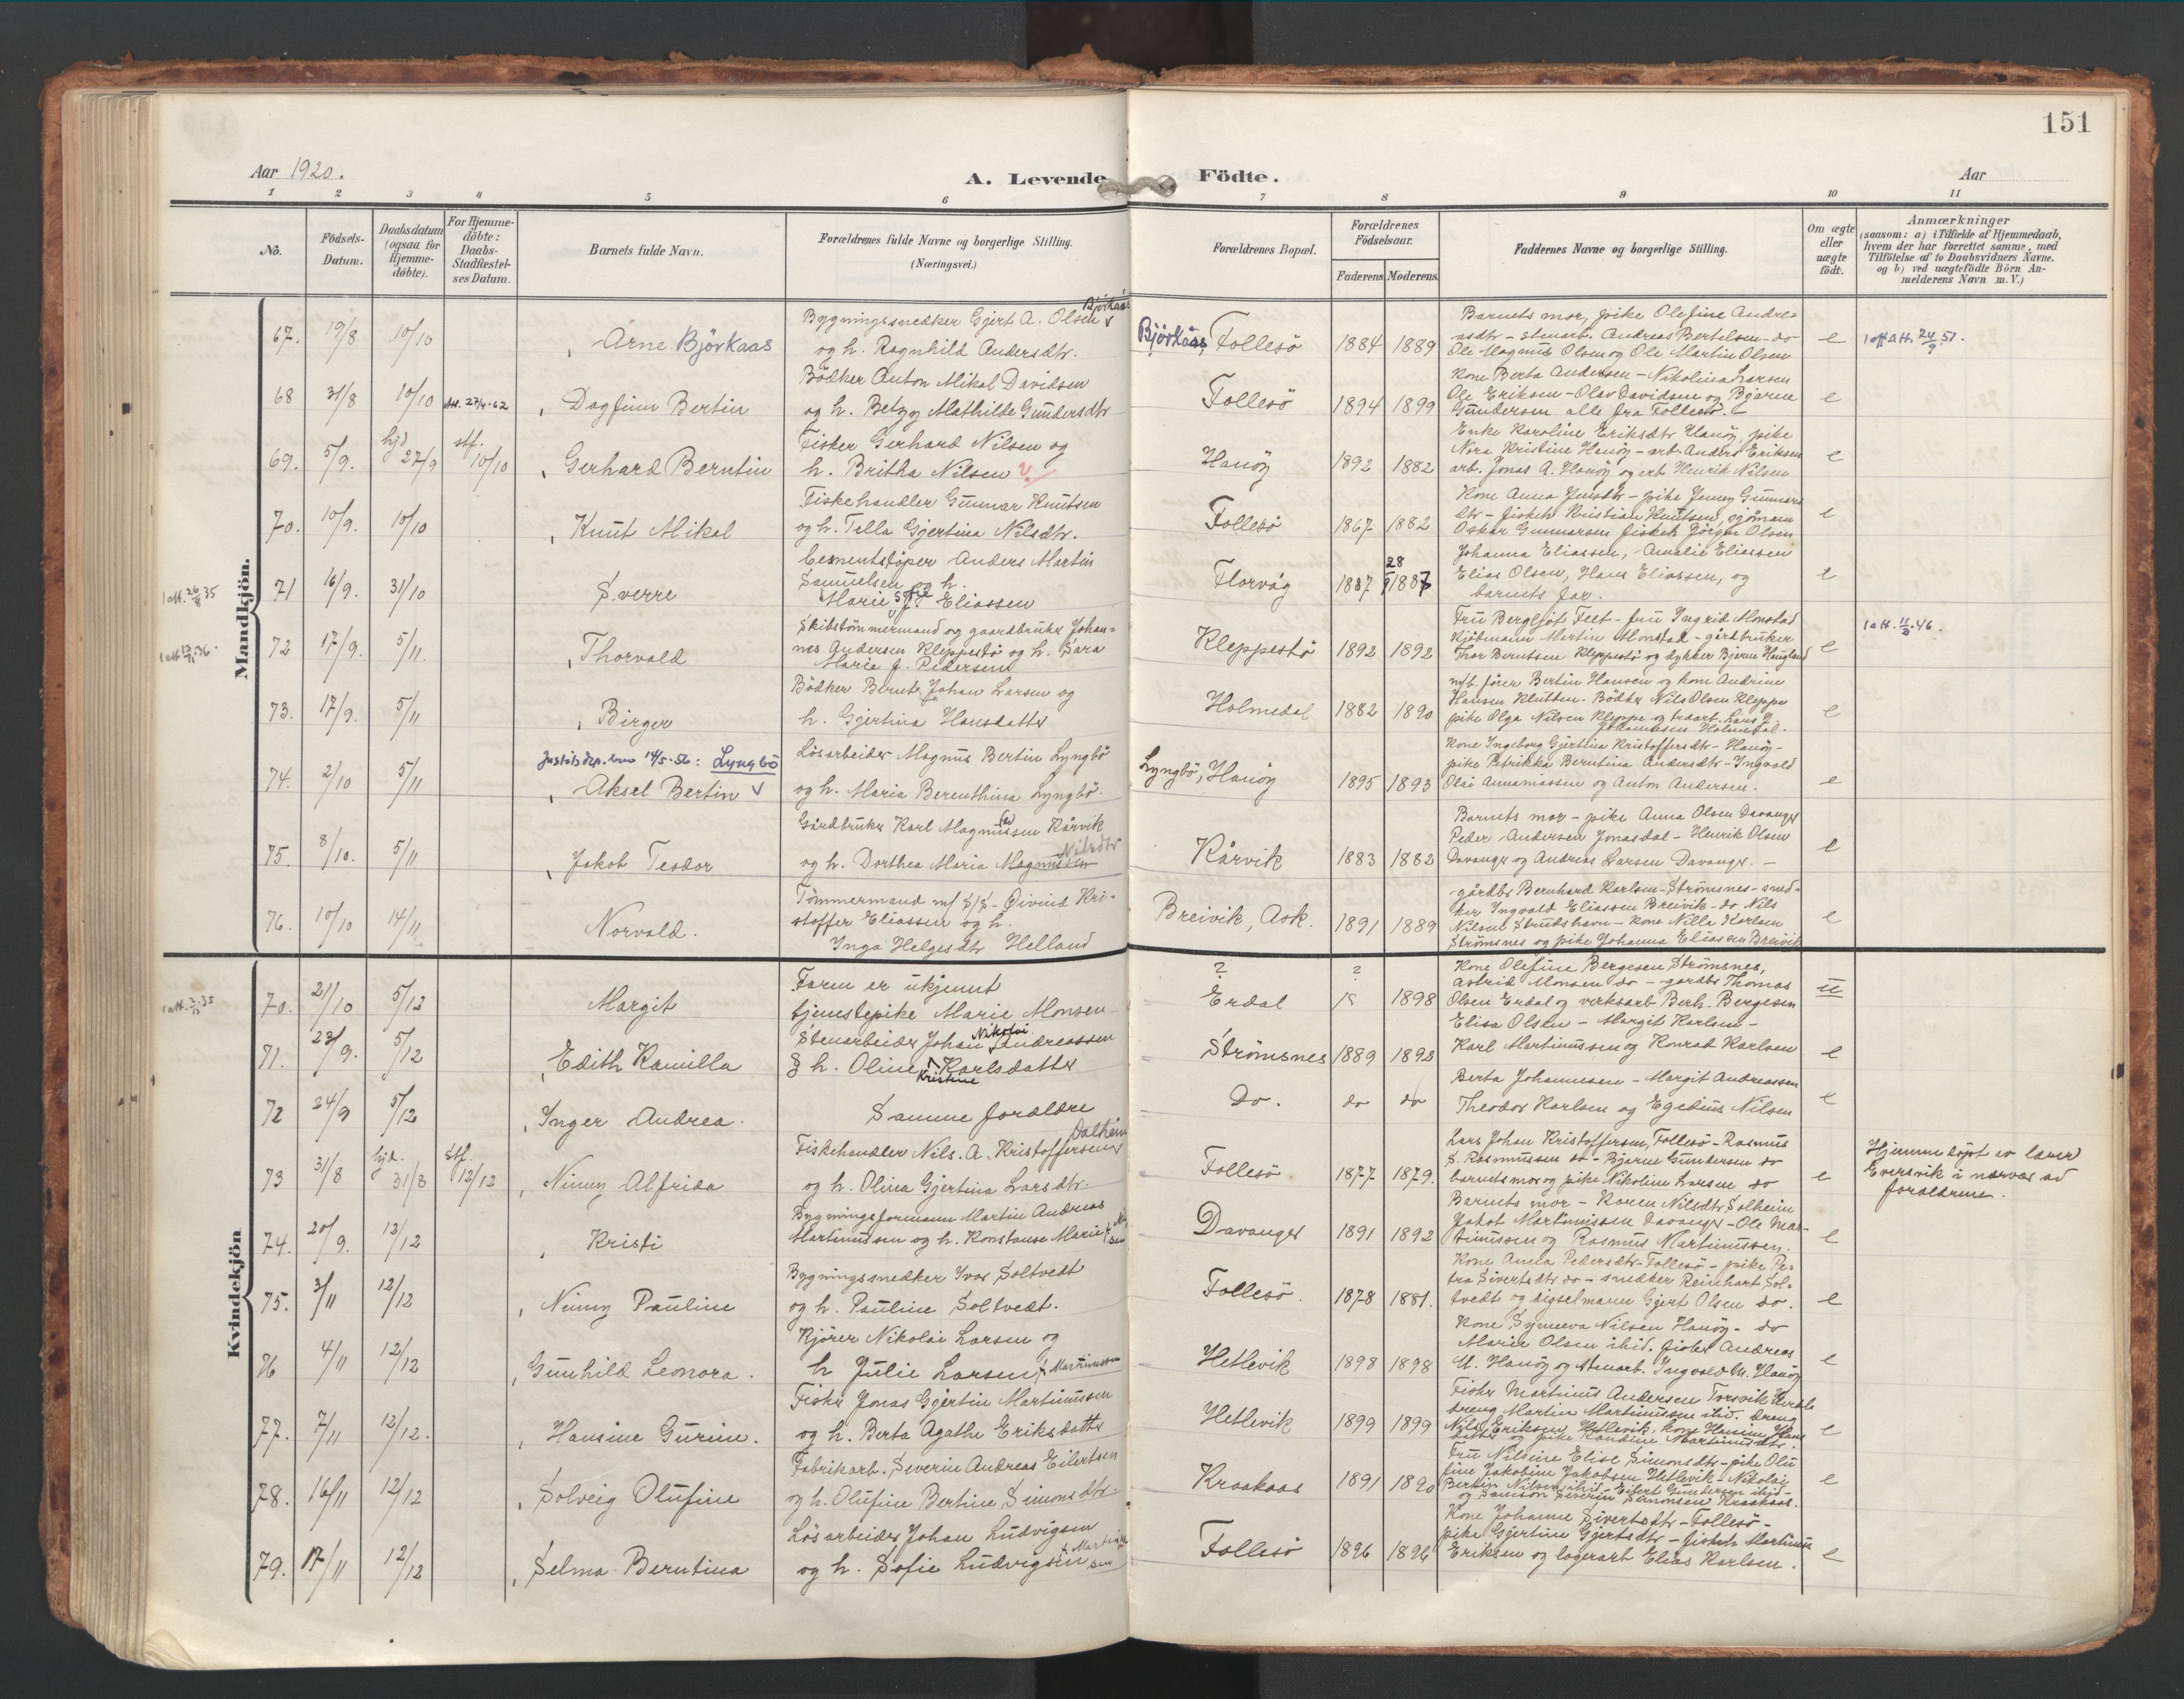 151
Aar 1920.
A. Levende Födte.
Aar
1 2 3 4 5 6 7 8 9 10 11
No.
Födsels-
Datum.
Daabsdatum
(ogsaa for
Hjemme-
döbte).
For Hjemme-
döbte:
Daabs-
Stadfæstel-
ses Datum.
Barnets fulde Navn.
Forældrenes fulde Navne og borgerlige Stilling.
(Næringsvei.)
Forældrenes Bopæl.
Forældrenes
Födselsaar.
Faderens. Moderens.
Faddernes Navne og borgerlige Stilling.
Om ægte
eller
uægte
födt.
Anmærkninger
(saasom: a) i Tilfælde af Hjemmedaab,
hvem der har forrettet samme, med
Tilföielse af to Daabsvidners Navne.
og b) ved uægtefödte Börn An-
melderens Navn m. V.)
Mandkjön.
67. 19/8 10/10 Arne Björkaas
Bygningssnedker Gjert A. Olsen Björkaas
og h. Ragnhild Andersdtr.
Björkaas, Follesö 1884 1889
Barnets mor, pike Olefine Andre-
asdtr - stenarb. Andreas Bertelsen do
Ole Magnus Olsen og Ole Martin Olsen
e 1 att. 24/9.51.
68 31/8 10/10 Att. 27/4-62 Dagfinn Bertin
Bödker Anton Mikal Davidsen
og h. Betzy Mathilde Gundersdtr
Follesö 1894 1899
Kone Berta Andersen - Nikolina Larsen
Ole Eriksen - Olav Davidsen og Bjarne
Gundersen alle fra Follesö.
e
69. 5/9. hjd 27/9 stf. 10/10 Gerhard Berntin
Fisker Gerhard Nilsen og
h. Britha Nilsen ?
Hanöy 1892 1882
Enke Karoline Eriksdtr Hanöy, pike
Nora Kristine Hanöy - arb. Anders Eriksen
arb. Jonas A. Hanöy og arb Henrik Nilsen
e
70. 10/9. 10/10 Knut Mikal
Fiskehandler Gunnar Knutsen
og h. Tella Gjertina Nilsdtr.
Follesö 1867 1882
Kone Anna Jensdtr - pike Jenny Gunnars
dtr - fisker Kristian Knutsen, sjömann
Oskar Gunnarsen fisker Jörgen Olsen
e
1 att. 26/8 35
71 16/9. 31/10 Sverre
Cementstöper Anders Martin
Samuelsen og h.
Marie Sofie Eliassen
Florvåg 1887 28 1887
Johanna Eliassen, - Amalie Eliassen
Elias Olsen, Hans Eliassen, og
barnets far.
e
72 17/9. 5/11. Thorvald
Skibstömmermand og gaardbruker Johan-
nes Andersen Kleppestö og h. Sara
Maria J. Pedersen
Kleppestö 1892 1892
Fru Bergljot Feet - fru Ingrid Monstad
Kjöbmann Martin Monstad - gårdbruker
Thor Berntsen Kleppestö og dykker Bjarne Haugland
e 1 att. 11/3.46.
73. 17/9. 5/11 Birger
Bödker Bernt Johan Larsen og
h. Gjertina Hansdatter
Holmedal 1882 1890
m/b. förer Bertin Hansen og kone Andrine
Hansen Kleppe - Bödker Nils Olsen Kleppe
pike Olga Nilsen Kleppe og
Johannesen Holmedal.
e
74. 2/10 5/11 Justitsdep. brev 14/5-56: Lyngbö
Aksel Bertin
Lösarbeider Magnus Bertin Lyngbö
og h. Maria Berenthina Lyngbö.
Lyngbö, Hanöy 1895 1893
Kone Ingeborg Gjertina Kristoffersdtr - Hanöy -
pike Petrikka Berntina Andersdtr - Ingvald
Olai Annaniassen og Anton Andersen.
e
75. 8/10. 5/11 Jakob Teodor
Gårdbruker Karl Magnussen Kårvik
og h. Dorthea Maria Magnussen Nilsdtr
Kårvik 1883 1882
Barnets mor - pike Anna Olsen Davanger
Peder Andersen Jonasdal - Henrik Olsen
Davanger og Andreas Larsen Davanger. -
e
76. 10/10 14/11 Norvald.
Tömmermand m/ S/S - Öivind Kri-
stoffer Eliassen og h.
Inga Helgesdtr Helland
Breivik, Ask. 1891 1889
gårdbr Bernhard Karlsen - Strömsnes - sned-
ker Ingvald Eliassen Breivik - do Nils
Nilsen Strudshavn - kone Nilla Karlsen
Strömsnes og pike Johanna Eliassen Breivik
e
Kvindekjön
70. 21/10 5/12 Margit
Faren er ukjennt
tjenestepike Marie Monsen
? Erdal ? 1898
Kone Olefine Bergesen, Strömsnes,
Astrid Monsen do - gardbr Thomas
Olsen Erdal og verksarb Berh. Bergesen
u
71. 23/9. 5/12 Edith Kamilla
Stenarbeider Johan Nikolai Andreassen
& h. Oline Kristine Karlsdatter
Strömsnes 1889 1892
Elisa Olsen - Margit Karlsen -
Karl Martinussen og Konrad Karlsen
e
72 24/9 5/12 Inger Andrea.
Samme foreldre
Do. do do
Berta Johannesen - Margit Andreassen
Theodor Karlsen og Egedius Nilsen
e
73 31/8 hjd. 31/8 Stf. 12/12 Ninny Alfrida
Fiskehandler Nils. A. Kristoffersen
og h. Olina Gjertina Larsdtr.
Follesö 1877 1879.
Lars Johan Kristoffersen, Follesö - Rasmus
S. Rasmussen do - Bjarne Gundersen do
barnets mor og pike Nikoline Larsen do
e
Hjemmedöpt av lærer
Eversvik i nærvær av
foreldrene.
74. 20/9. 12/12 Kristi
Bygningsformann Martin Andreas
Martinussen og h. Konstanse Marie
Davanger 1891 1892
Barnets mor - Karen Nilsdtr Solheim
Jakob Martinussen Davanger - Ole Mar-
tinussen og Rasmus Martinussen.
e
75. 3/11 12/12 Ninny Pauline
Bygningssnedker Ivar Soltvedt
og h. Pauline Soltvedt.
Follesö. 1878 1881.
Kone Anna Pedersdtr - Follesö - pike Pe-
tra Sivertsdtr do - snedker Reinhart Sol-
tvedt og Gjert Olsen do.
e
76 4/11 12/12 Gunhild Leonora.
Kjörer Nikolai Larsen og
h Julie Larsen f. Martinussen
Hetlevik 1898 1898
Kone Synneva Nilsen Hanöy - do
Marie Olsen ibid. fisker Andreas
M. Hanöy og stenarb. Ingvald M. Hanöy
e
77. 7/11 12/12. Hansine Gurine.
Fisker Jonas Gjertin Martinussen
og h. Berta Agathe Eriksdatter
Hetlevik 1899 1899
Fisker Martinus Andersen Torsvik
dreng Martin Martinussen ibid. dreng
Nils Eriksen Hetlevik, kone Hansine Hans
datter og pike Martinusdtr.
e
78. 16/11 12/12 Solveig Olufine
Fabrikarb. Severin Andreas Eilertsen
og h. Olufine Bertine Simonsdtr.
Kraakaas 1891 1890
Fru Nilsine Elise Simonsdtr - pike Olu
fine Jakobine Jakobsen Hetlevik - Nikolai
Bertin Nilsen ibid - Eilert Gundersen ibid -
og Samson Severin Simonsen Kraakaas.
e
79. 17/11 12/12 Selma Berntina
Lösarbeider Johan Ludvigsen
og h. Sofie Ludvigsen
Follesö 1896 1896
Kone Johanne Sivertsdtr - Follesö -
pike Gjertine Gjertsdtr - fisker Martinus
Eriksen og lagerarb Elias Karlsen.
e